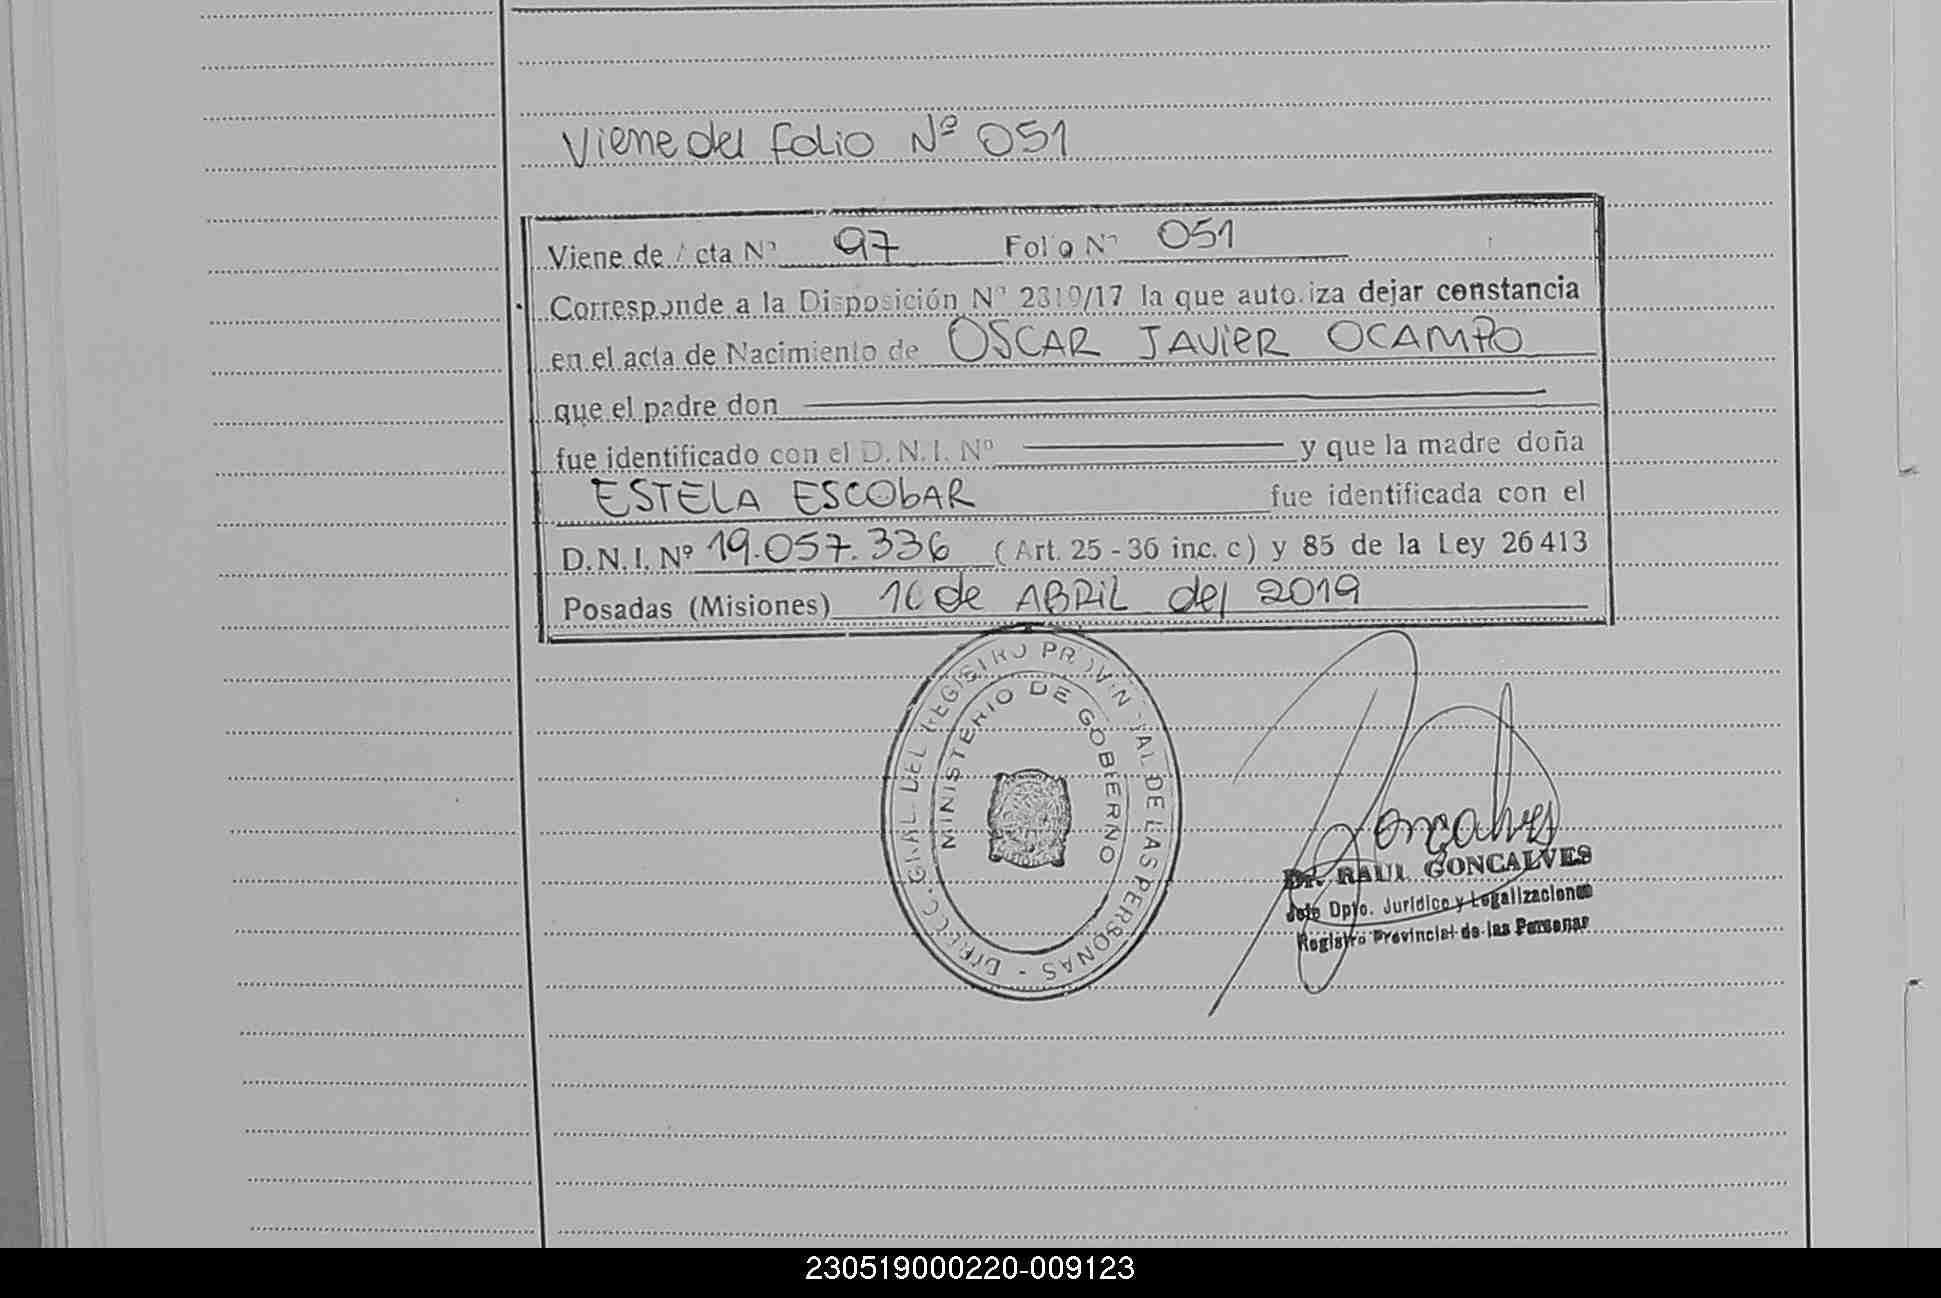 Viene del Folio Nº 051
Viene de Acta Nº 97 Folio Nº 051
Corresponde a la Disposición Nº 2319/17 la que autoriza dejar constancia
en el acta de Nacimiento de OSCAR JAVIER OCAMPO
que el padre don
fue identificado con el D. N. I. Nº y que la madre doña
ESTELA ESCObAR fue identificada con el
D. N. I. Nº 19.057.336 (Art. 25 - 36 inc. c) y 85 de la Ley 26413
Posadas (Misiones) de ABRIL del 2019
DIRECC. GRAL. DEL REGISTRO PROVINCIAL DE LAS PERSONAS -
MINISTERIO DE GOBIERNO
Goncalves
Dr. RAUL GONCALVES
Jefe Dpto. Jurídico y Legalizaciones
Registro Provincial de las Personas
230519000220-009123